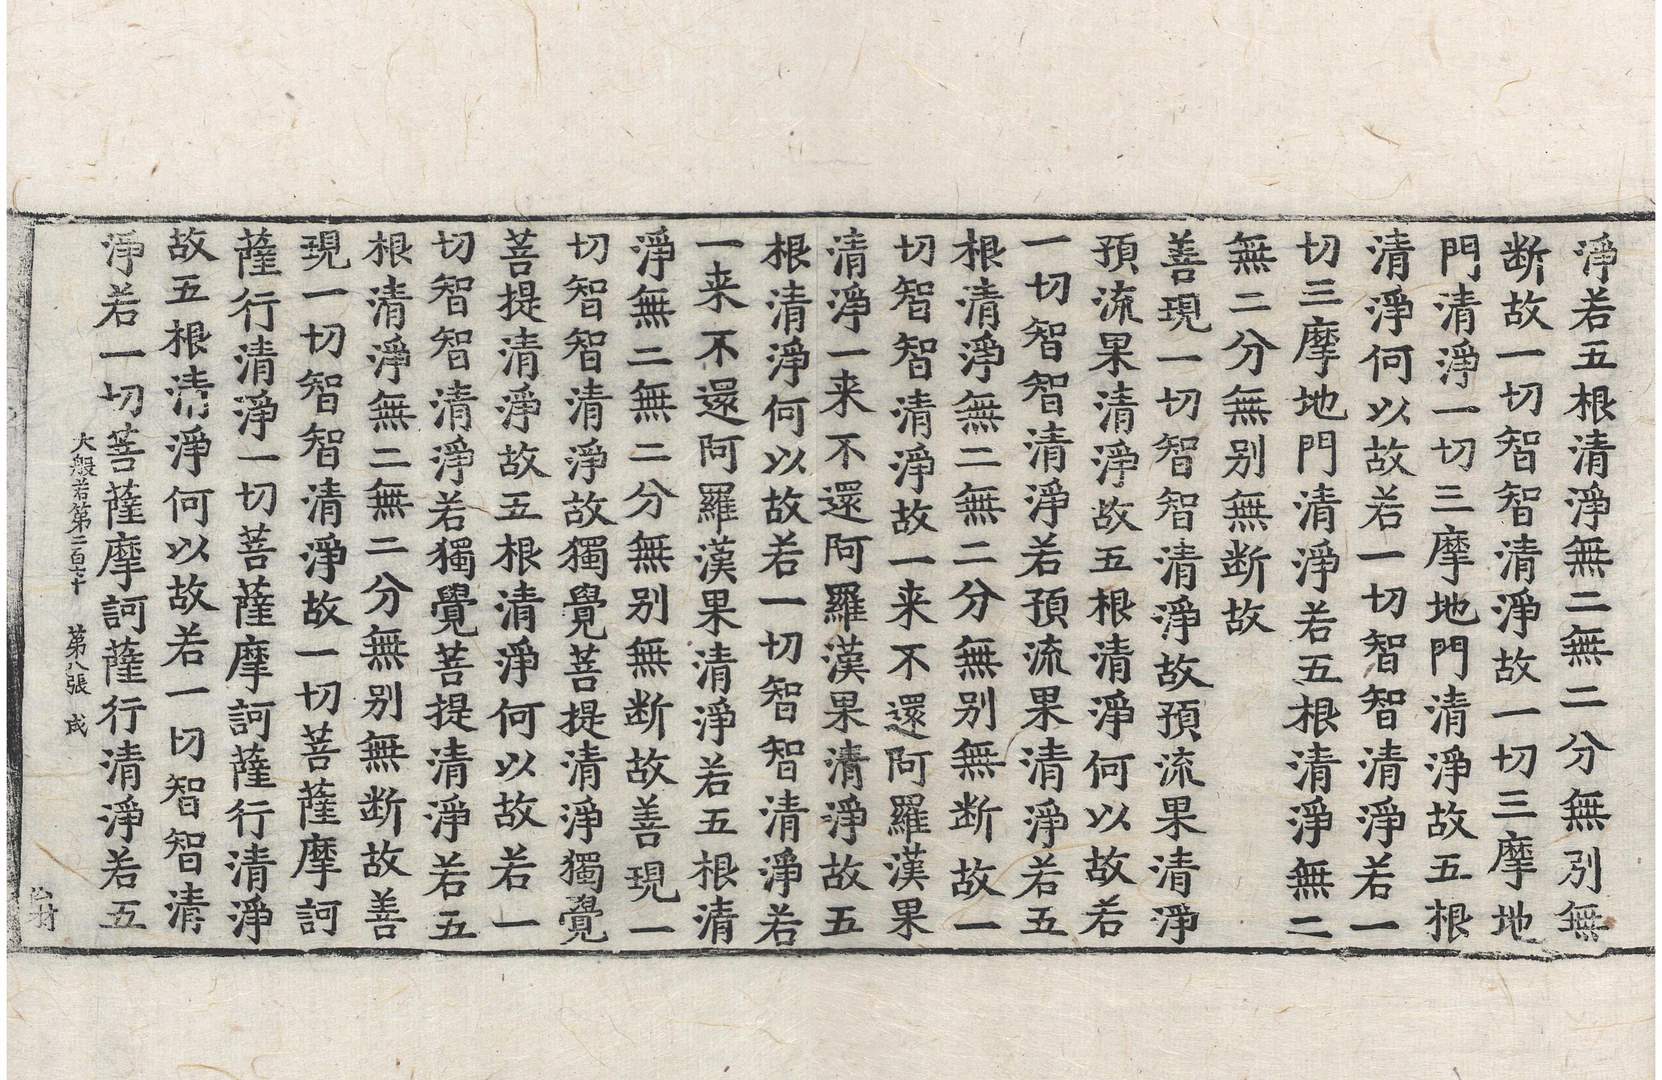 淨若五根清淨無二無二分無別無
断故一切智智清淨故一切三摩地
門清淨一切三摩地門清淨故五根
清淨何以故若一切智智清淨若一
切三摩地門清淨若五根清淨無二
無二分無別無断故
善現一切智智清淨故預流果清淨
預流果清淨故五根清淨何以故若
一切智智清淨若預流果清淨若五
根清淨無二無二分無別無断故一
切智智清淨故一来不還阿羅漢果
清淨一来不還阿羅漢果清淨故五
根清淨何以故若一切智智清淨若
一来不還阿羅漢果清淨若五根清
淨無二無二分無別無断故善現一
切智智清淨故獨覺菩提清淨獨覺
菩提清淨故五根清淨何以故若一
切智智清淨若獨覺菩提清淨若五
根清淨無二無二分無別無断故善
現一切智智清淨故一切菩薩摩訶
薩行清淨一切菩薩摩訶薩行清淨
故五根清淨何以故若一切智智清
淨若一切菩薩摩訶薩行清淨若五
大般若第二百六十 第八張 成